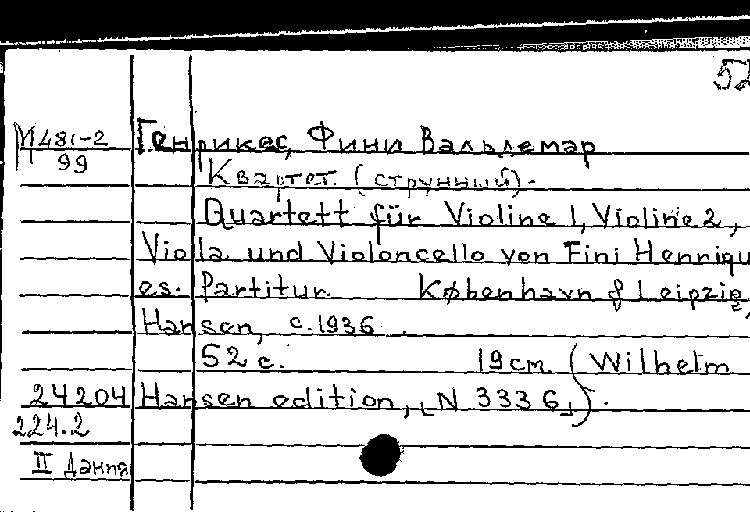 52
М 481-2
99
Генрикес, Фини Вальдемар
Квартет (струнный).
Quartett für Violine 1, Violine 2,
Viola und Violoncello von Fini Henriqu
es. Partitur. København & Leipzig,
Hansen, c. 1936.
52 с. 19 cm. (Wilhelm
24204 Hansen edition, [N 3336]).
224.2
II Дания